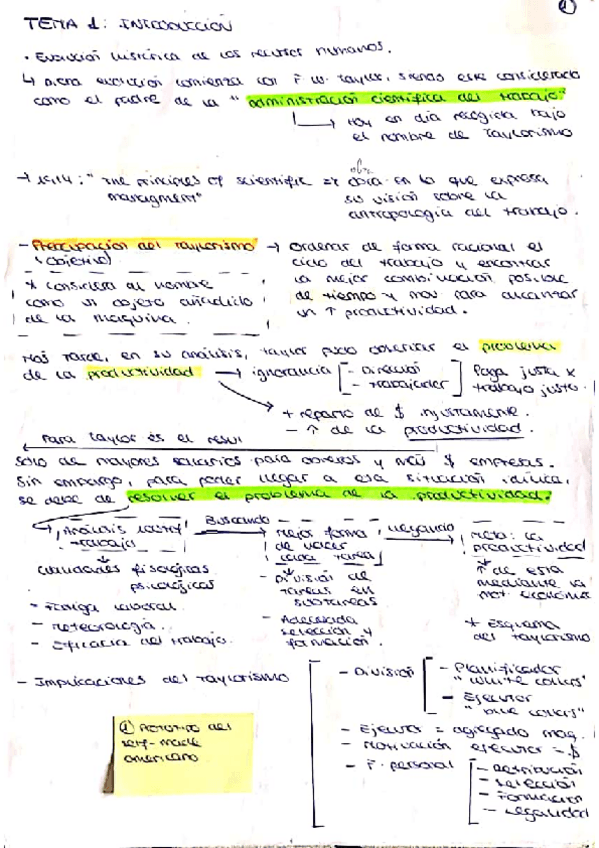 1
TEMA 1: INTRODUCCIÓN
• Evolución histórica de los recursos humanos.
↳ Dicha evolución comienza con F. W. Taylor, siendo este considerado
como el padre de la "administración científica del trabajo."
↳ Hoy en día recogida bajo
el nombre de Taylorismo
→ "The principles of scientific ⇒ obra en lo que expresa
managment" su visión sobre la
antropología del trabajo.
- Preocupación del taylorismo → ordenar de forma racional el
(objetivo) ciclo del trabajo y encontrar
* considera al hombre la mejor combinación posible
como un objeto añadido de tiempo y mov. para alcanzar
de la maquina. un ↑ productividad.
Más tarde, en su análisis, Taylor pudo observar el problema
de la productividad → ignorancia - Dirección Paga justa x
- trabajador trabajo justo.
+ reparto de $ injustamente.
- ↑ de la productividad.
Para Taylor es el resul
solo de mayores salarios para obreros y $ empresas.
Sin embargo, para poder llegar a esa situación
se debe de resolver el problema de la productividad.
Análisis Buscando Mejor forma llegando Meta: la
trabajo de hacer productividad
cada tarea
cualidades fisiológicas - División de ↑ de esta
psicológicas tareas en mediante la
- Fatiga laboral. subtareas mot. económica
- Metereología. - Adecuada * Esquema
- Eficacia del trabajo. selección y del taylorismo
formación.
- Implicaciones del taylorismo - División - Planificador
"white collers"
- Ejecutor
"blue collers"
- Ejecutor = agregado maq.
- Motivación ejecutor = $
- F. personal - Retribución
- Selección
- Formación
- Legalidad
① Prototipo del
self-made
americano.